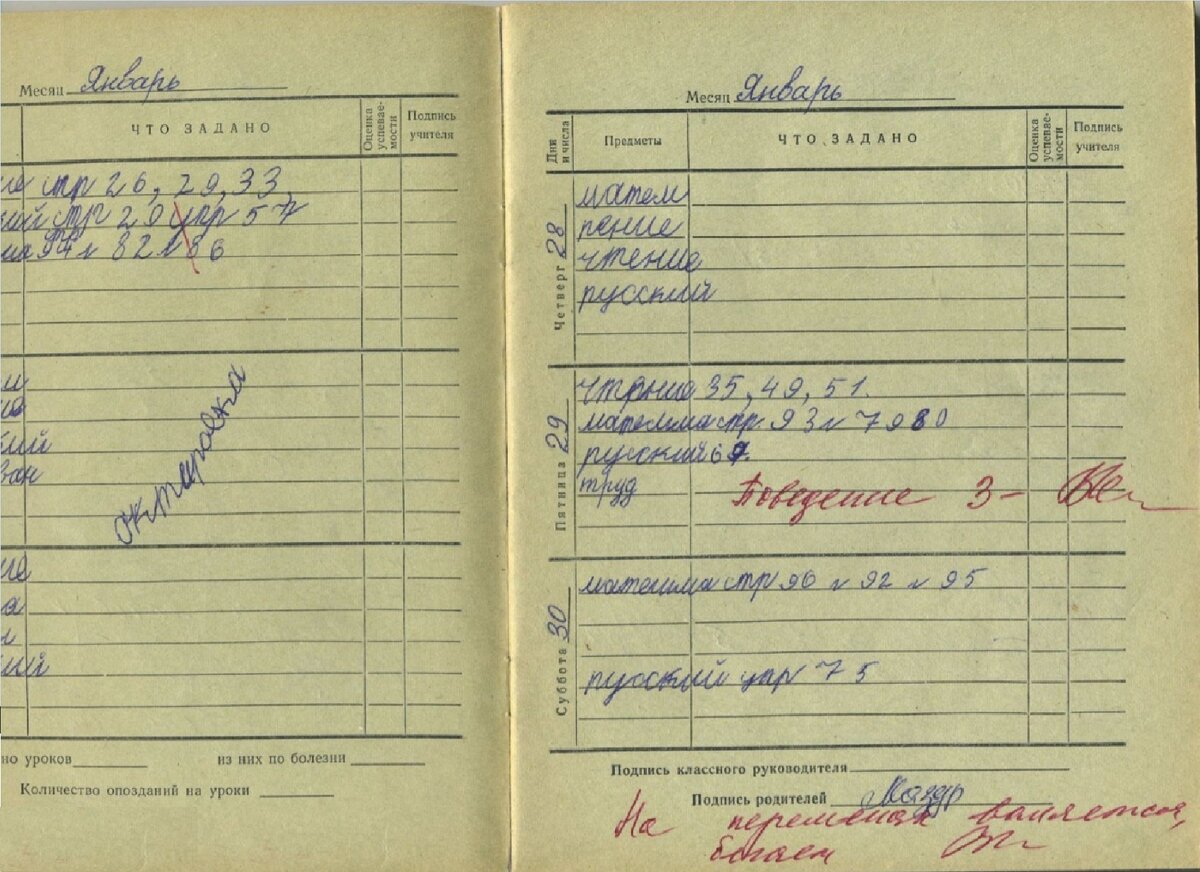 Месяц Январь
ЧТО ЗАДАНО
Оценка успевае-мости
Подпись учителя
ие стр 26, 29, 33,
кий стр 29 упр 57
94 № 82 № 86
ский
октировка
ие
кий
но уроков
из них по болезни
Количество опозданий на уроки
Месяц Январь
Дни и числа
Предметы
ЧТО ЗАДАНО
Оценка успевае-мости
Подпись учителя
Четверг 28
матем
пение
чтение
русский
Пятница 29
чтение 35, 49, 51.
матемма стр. 93 № 79 80
русский 67.
труд Поведение 3-
Суббота 30
матемма стр 96 № 92 № 95
русский упр 75
Подпись классного руководителя
Подпись родителей Мазур
На переменах валяется,
бегает